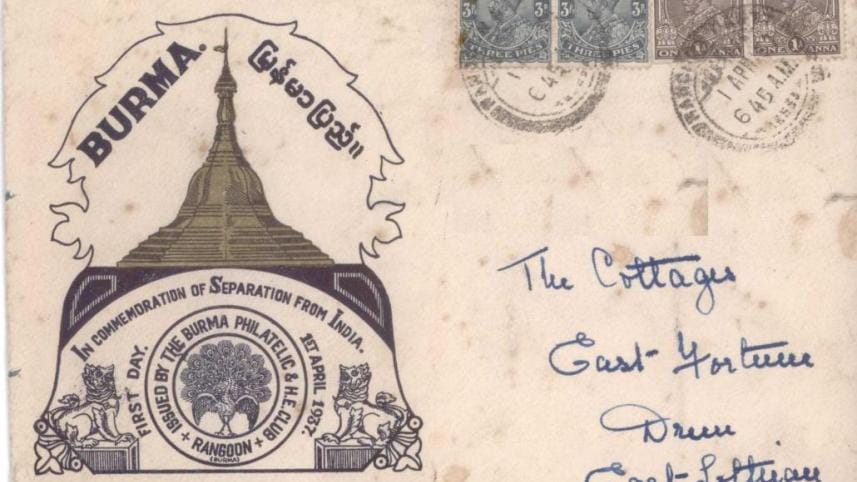 BURMA.
မြန်မာပြည်။
IN COMMEMORATION OF SEPARATION FROM INDIA.
FIRST DAY.
1ST APRIL 1937.
ISSUED BY THE BURMA PHILATELIC & H.E. CLUB
+ RANGOON +
(BURMA)
3P 3P
THREE PIES THREE PIES
1 1
ONE ANNA ONE ANNA
645
1 APR
645 A.M.
The Cottages
East Fortune
Drem
East Lothian